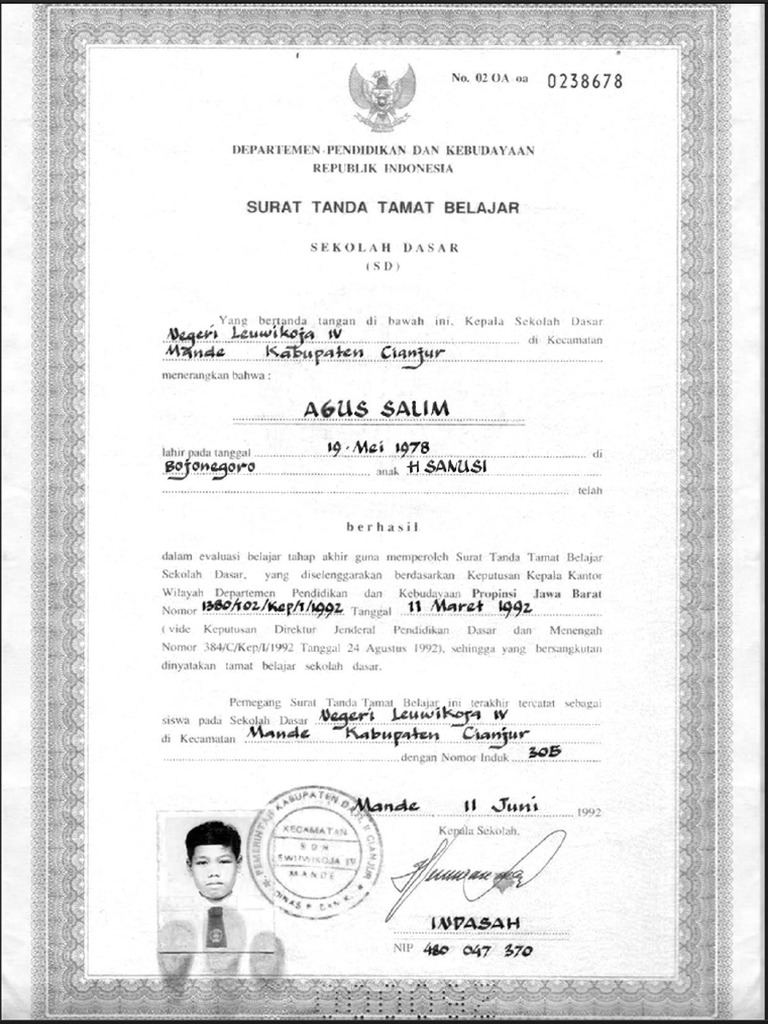 No. 02 OA oa 0238678
DEPARTEMEN PENDIDIKAN DAN KEBUDAYAAN
REPUBLIK INDONESIA
SURAT TANDA TAMAT BELAJAR
SEKOLAH DASAR
(SD)
Yang bertanda tangan di bawah ini, Kepala Sekolah Dasar
Negeri Leuwikoja IV di Kecamatan
Mande Kabupaten Cianjur
menerangkan bahwa :
AGUS SALIM
lahir pada tanggal 19 - Mei 1978 di
Bojonegoro anak H SANUSI
telah
berhasil
dalam evaluasi belajar tahap akhir guna memperoleh Surat Tanda Tamat Belajar
Sekolah Dasar, yang diselenggarakan berdasarkan Keputusan Kepala Kantor
Wilayah Departemen Pendidikan dan Kebudayaan Propinsi Jawa Barat
Nomor 1380/102/Kep/I/1992 Tanggal 11 Maret 1992
( vide Keputusan Direktur Jenderal Pendidikan Dasar dan Menengah
Nomor 384/C/Kep/I/1992 Tanggal 24 Agustus 1992), sehingga yang bersangkutan
dinyatakan tamat belajar sekolah dasar.
Pemegang Surat Tanda Tamat Belajar ini terakhir tercatat sebagai
siswa pada Sekolah Dasar Negeri Leuwikoja IV
di Kecamatan Mande Kabupaten Cianjur
dengan Nomor Induk 305
Mande 11 Juni 1992
Kepala Sekolah,
PEMERINTAH KABUPATEN DATI II CIANJUR
KECAMATAN
SDN
LEUWIKOJA IV
MANDE
DINAS P DAN K
INDASAH
NIP 480 047 370